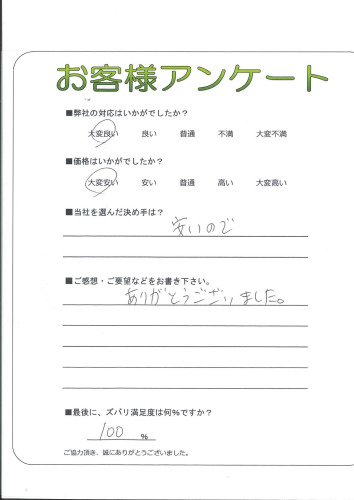 お客様アンケート
■弊社の対応はいかがでしたか?
大変良い 良い 普通 不満 大変不満
■価格はいかがでしたか?
大変安い 安い 普通 高い 大変高い
■当社を選んだ決め手は?
安いので
■ご感想・ご要望などをお書き下さい。
ありがとうございました。
■最後に、ズバリ満足度は何%ですか?
100 %
ご協力頂き、誠にありがとうございました。